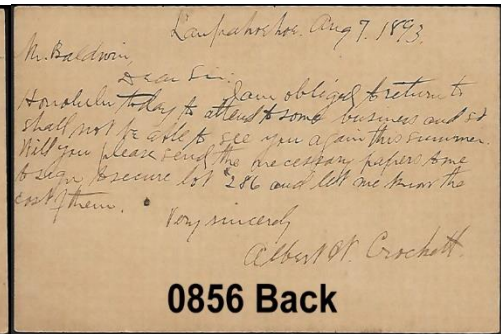 Laupahoehoe. Aug 7. 1893.
Mr. Baldwin,
Dear Sir:
I am obliged to return to
Honolulu today to attend to some business and so
shall not be able to see you again this summer.
Will you please send the necessary papers to me
to sign to secure lot 286 and let me know the
cost of them.
Very sincerely
Albert W. Crockett.
0856 Back